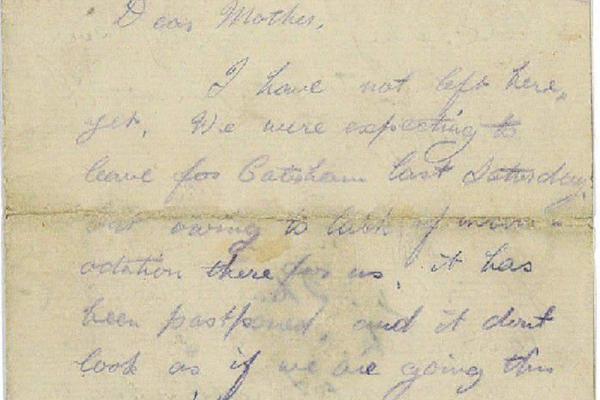 Dear Mother,
I have not left here,
yet. We were expecting to
leave for Catsham last Saturday,
but owing to lack of
odation there for us, it has
been postponed, and it dont
look as if we are going this